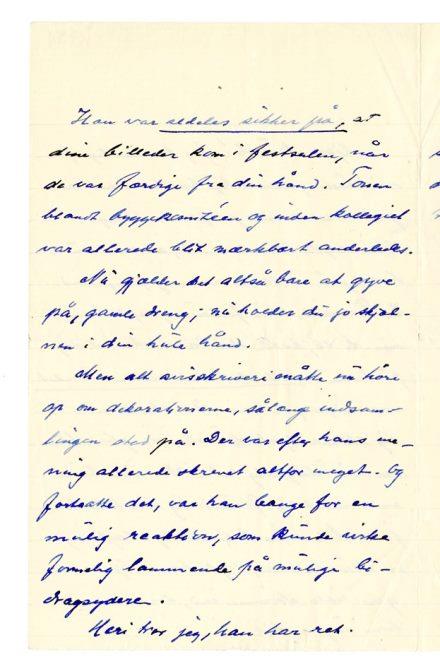 Han var aldeles sikker på, at
dine billeder kom i festsalen, når
de var færdige fra din hånd. Tonen
blandt byggekomitéen og inden kollegiet
var allerede blit mærkbart anderledes.
Nu gjælder det altså bare at gyve
på, gamle dreng; nu holder du jo skjæb-
nen i din hule hånd.
Men alt avisskriveri måtte nu høre
op om dekorationerne, sålænge indsam-
lingen stod på. Der var efter hans me-
ning allerede skrevet altfor meget. Og
fortsatte det, var han bange for en
mulig reaktion, som kunde virke
formelig lammende på mulige bi-
dragsydere.
Heri tror jeg, han har ret.